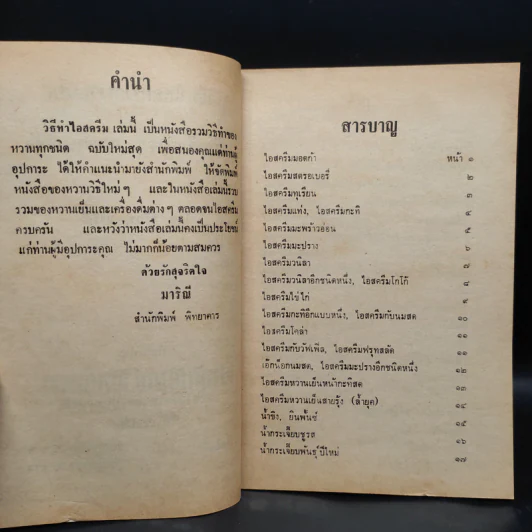 คำนำ
วิธีทำไอสครีม เล่มนี้ เป็นหนังสือรวมวิธีทำของ
หวานทุกชนิด ฉบับใหม่สุด เพื่อสนองคุณแด่ท่านผู้
อุปการะ ได้ให้คำแนะนำมายังสำนักพิมพ์ ให้จัดพิมพ์
หนังสือของหวานวิธีใหม่ ๆ และในหนังสือเล่มนี้รวบ
รวมของหวานเย็นและเครื่องดื่มต่าง ๆ ตลอดจนไอสครีม
ครบครัน และหวังว่าหนังสือเล่มนี้คงเป็นประโยชน์
แก่ท่านผู้มีอุปการะคุณ ไม่มากก็น้อยตามสมควร
ด้วยรักสุจริตใจ
มาริณี
สำนักพิมพ์ พิทยาคาร
สารบาญ
ไอสครีมมอคก้า หน้า ๑
ไอสครีมสตรอเบอรี่ ๒
ไอสครีมทุเรียน
ไอสครีมแท่ง, ไอสครีมกะทิ
ไอสครีมมะพร้าวอ่อน
ไอสครีมมะปราง
ไอสครีมวนิลา
ไอสครีมวนิลาอีกชนิดหนึ่ง, ไอสครีมโกโก้
ไอสครีมไข่ไก่ ๙
ไอสครีมกะทิอีกแบบหนึ่ง, ไอสครีมกับนมสด ๑๐
ไอสครีมโคล่า ๑๑
ไอสครีมกับวัฟเฟิล, ไอสครีมฟรุทสลัด ๑๑
เอ๊กน็อกนมสด, ไอสครีมมะปรางอีกชนิดหนึ่ง ๑๒
ไอสครีมหวานเย็นหน้ากะทิสด
ไอสครีมหวานเย็นสายรุ้ง (ล้ำยุค)
น้ำขิง, ยินพั้นซ์
น้ำกระเจี๊ยบชูรส ๑๖
น้ำกระเจี๊ยบพันธุ์ปีใหม่ ๑๗